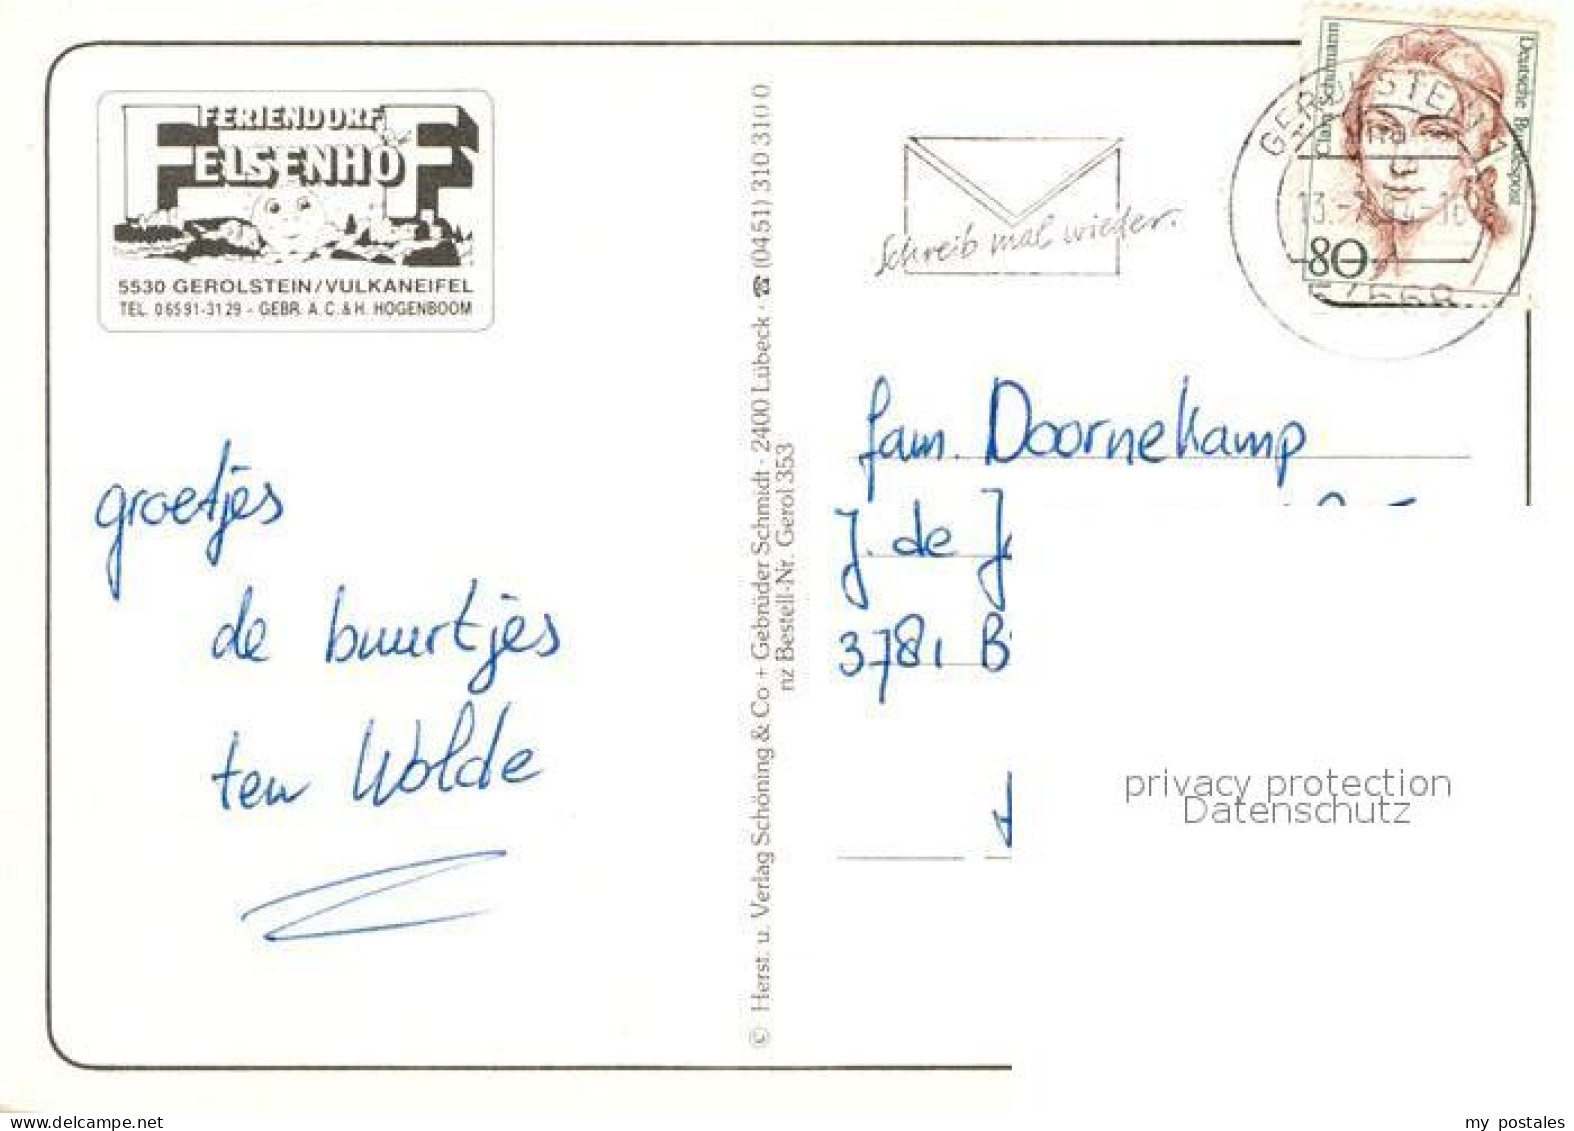 FERIENDORF
FELSENHOF
5530 GEROLSTEIN/VULKANEIFEL
TEL. 06591-3129 - GEBR. A.C. & H. HOGENBOOM
groetjes
de buurtjes
ten Wolde
© Herst. u. Verlag Schöning & Co + Gebrüder Schmidt · 2400 Lübeck · ☎ (0451) 310 310 0
nz Bestell-Nr. Gerol 353
Schreib mal wieder.
Clara Schumann
Deutsche Bundespost
80
GEROLSTEIN 1
54568
fam. Doornekamp
J. de
3781 B
privacy protection
Datenschutz
my postales